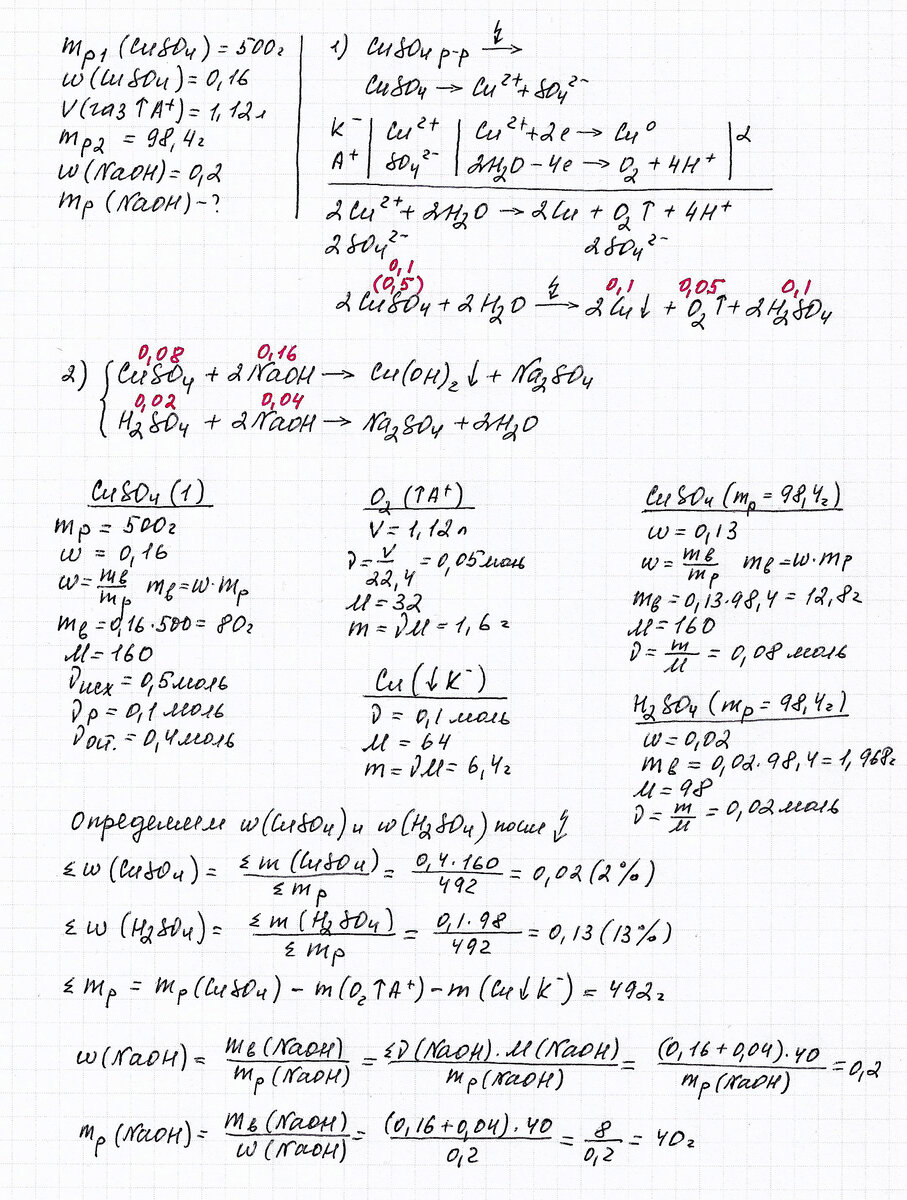 m р1 (CuSO4) = 500г
w(CuSO4) = 0,16
V(газ↑A⁺) = 1,12л
m р2 = 98,4г
w(NaOH) = 0,2
m р (NaOH) - ?
1) CuSO4 р-р ↯→
CuSO4 → Cu²⁺ + SO4²⁻
K⁻ | Cu²⁺ | Cu²⁺ + 2e → Cu⁰ | 2
A⁺ | SO4²⁻ | 2H2O - 4e → O2 + 4H⁺ |
2Cu²⁺ + 2H2O → 2Cu + O2↑ + 4H⁺
2SO4²⁻ 2SO4²⁻
0,1
(0,5) 0,1 0,05 0,1
2CuSO4 + 2H2O ↯→ 2Cu↓ + O2↑ + 2H2SO4
0,08 0,16
2) { CuSO4 + 2NaOH → Cu(OH)2↓ + Na2SO4
0,02 0,04
H2SO4 + 2NaOH → Na2SO4 + 2H2O
CuSO4 (1)
mр = 500г
w = 0,16
w = mв/mр mв = w·mр
mв = 0,16·500 = 80г
M = 160
νисх = 0,5моль
νр = 0,1 моль
νост. = 0,4моль
O2 (↑A⁺)
V = 1,12л
ν = V/22,4 = 0,05моль
M = 32
m = νM = 1,6г
Cu (↓K⁻)
ν = 0,1 моль
M = 64
m = νM = 6,4г
CuSO4 (mр = 98,4г)
w = 0,13
w = mв/mр mв = w·mр
mв = 0,13·98,4 = 12,8г
M = 160
ν = m/M = 0,08 моль
H2SO4 (mр = 98,4г)
w = 0,02
mв = 0,02·98,4 = 1,968г
M = 98
ν = m/M = 0,02 моль
Определим w(CuSO4) и w(H2SO4) после ↯
Σ w (CuSO4) = Σ m (CuSO4)/Σ mр = 0,4·160/492 = 0,02 (2%)
Σ w (H2SO4) = Σ m (H2SO4)/Σ mр = 0,1·98/492 = 0,13 (13%)
Σ mр = mр (CuSO4) - m(O2↑A⁺) - m (Cu↓K⁻) = 492г
w (NaOH) = mв (NaOH)/mр (NaOH) = Σν (NaOH)·M(NaOH)/mр (NaOH) = (0,16+0,04)·40/mр (NaOH) = 0,2
mр (NaOH) = mв (NaOH)/w (NaOH) = (0,16+0,04)·40/0,2 = 8/0,2 = 40г